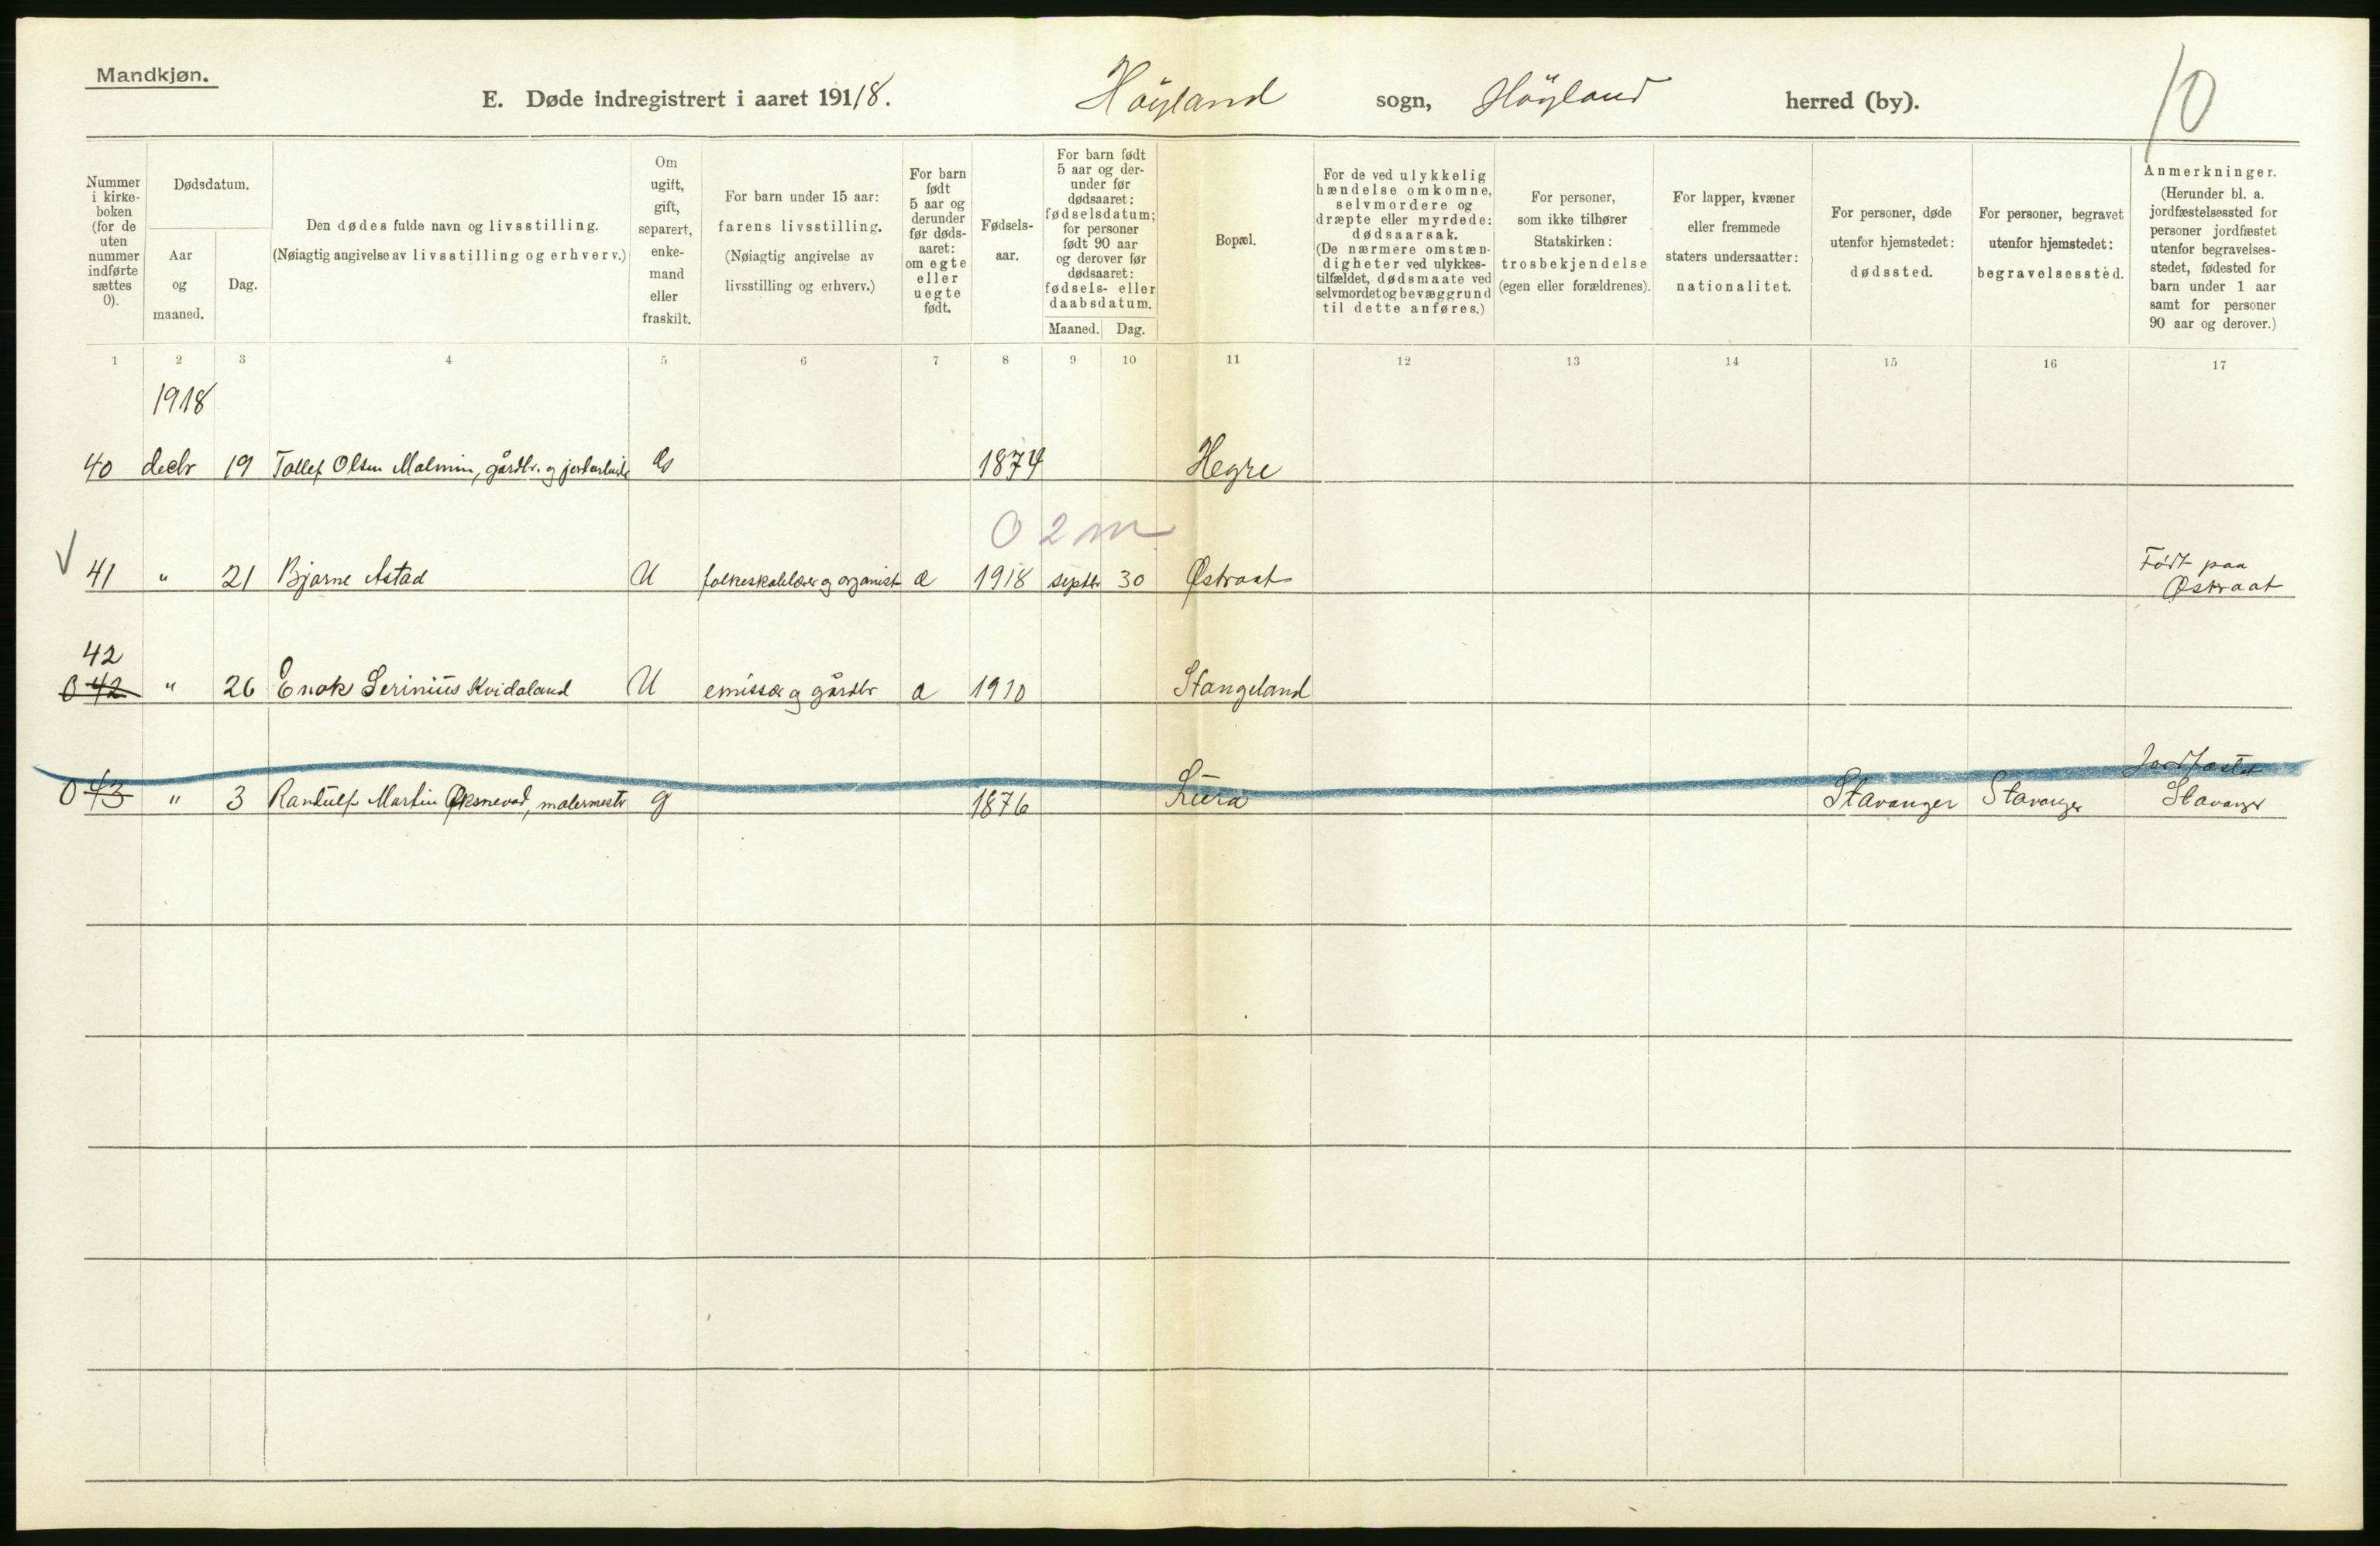 Mandkjøn.
E. Døde indregistrert i aaret 1918. Höyland sogn, Höyland herred (by).
10
Nummer
i kirke-
boken
(for de
uten
nummer
indførte
sættes
0).
Dødsdatum.
Aar
og
maaned.
Dag.
Den dødes fulde navn og livsstilling.
(Nøiagtig angivelse av livsstilling og erhverv.)
Om
ugift,
gift,
separert,
enke-
mand
eller
fraskilt.
For barn under 15 aar:
farens livsstilling.
(Nøiagtig angivelse av
livsstilling og erhverv.)
For barn
født
5 aar og
derunder
før døds-
aaret:
om egte
eller
uegte
født.
Fødsels-
aar.
For barn født
5 aar og der-
under før
dødsaaret:
fødselsdatum;
for personer
født 90 aar
og derover før
dødsaaret:
fødsels- eller
daabsdatum.
Maaned. Dag.
Bopæl.
For de ved ulykkelig
hændelse omkomne,
selvmordere og
dræpte eller myrdede:
dødsaarsak.
(De nærmere omstæn-
digheter ved ulykkes-
tilfældet, dødsmaate ved
selvmordet og bevæggrund
til dette anføres.)
For personer,
som ikke tilhører
Statskirken:
trosbekjendelse
(egen eller forældrenes).
For lapper, kvæner
eller fremmede
staters undersaatter:
nationalitet.
For personer, døde
utenfor hjemstedet:
dødssted.
For personer, begravet
utenfor hjemstedet:
begravelsessted.
Anmerkninger.
(Herunder bl. a.
jordfæstelsessted for
personer jordfæstet
utenfor begravelses-
stedet, fødested for
barn under 1 aar
samt for personer
90 aar og derover.)
1 2 3 4 5 6 7 8 9 10 11 12 13 14 15 16 17
1918
40 decbr 19 Tollef Olsen Malmin, gårdbr. og jordarbeider G 1874 Hegre
0 2 m
41 " 21 Bjarne Astad U folkeskolelærer og organist a 1918 septbr 30 Østraat Födt paa
Østraat
42
0 42 " 26 Enok Serinius Kvidaland U emissær og gårdbr a 1910 Stangeland
Jordfæstet
0 43 " 3 Randulf Martin Øksnevad, malermester g 1876 Lura Stavanger Stavanger Stavanger